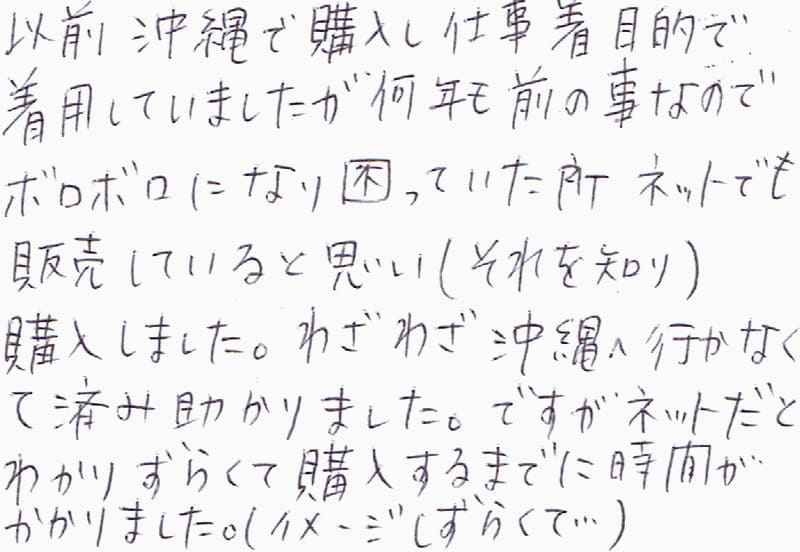 以前沖縄で購入し仕事着目的で
着用していましたが何年も前の事なので
ボロボロになり困っていた所 ネットでも
販売していると思い(それを知り)
購入しました。わざわざ沖縄へ行かなく
て済み助かりました。ですがネットだと
わかりずらくて購入するまでに時間が
かかりました。(イメージしずらくて…)